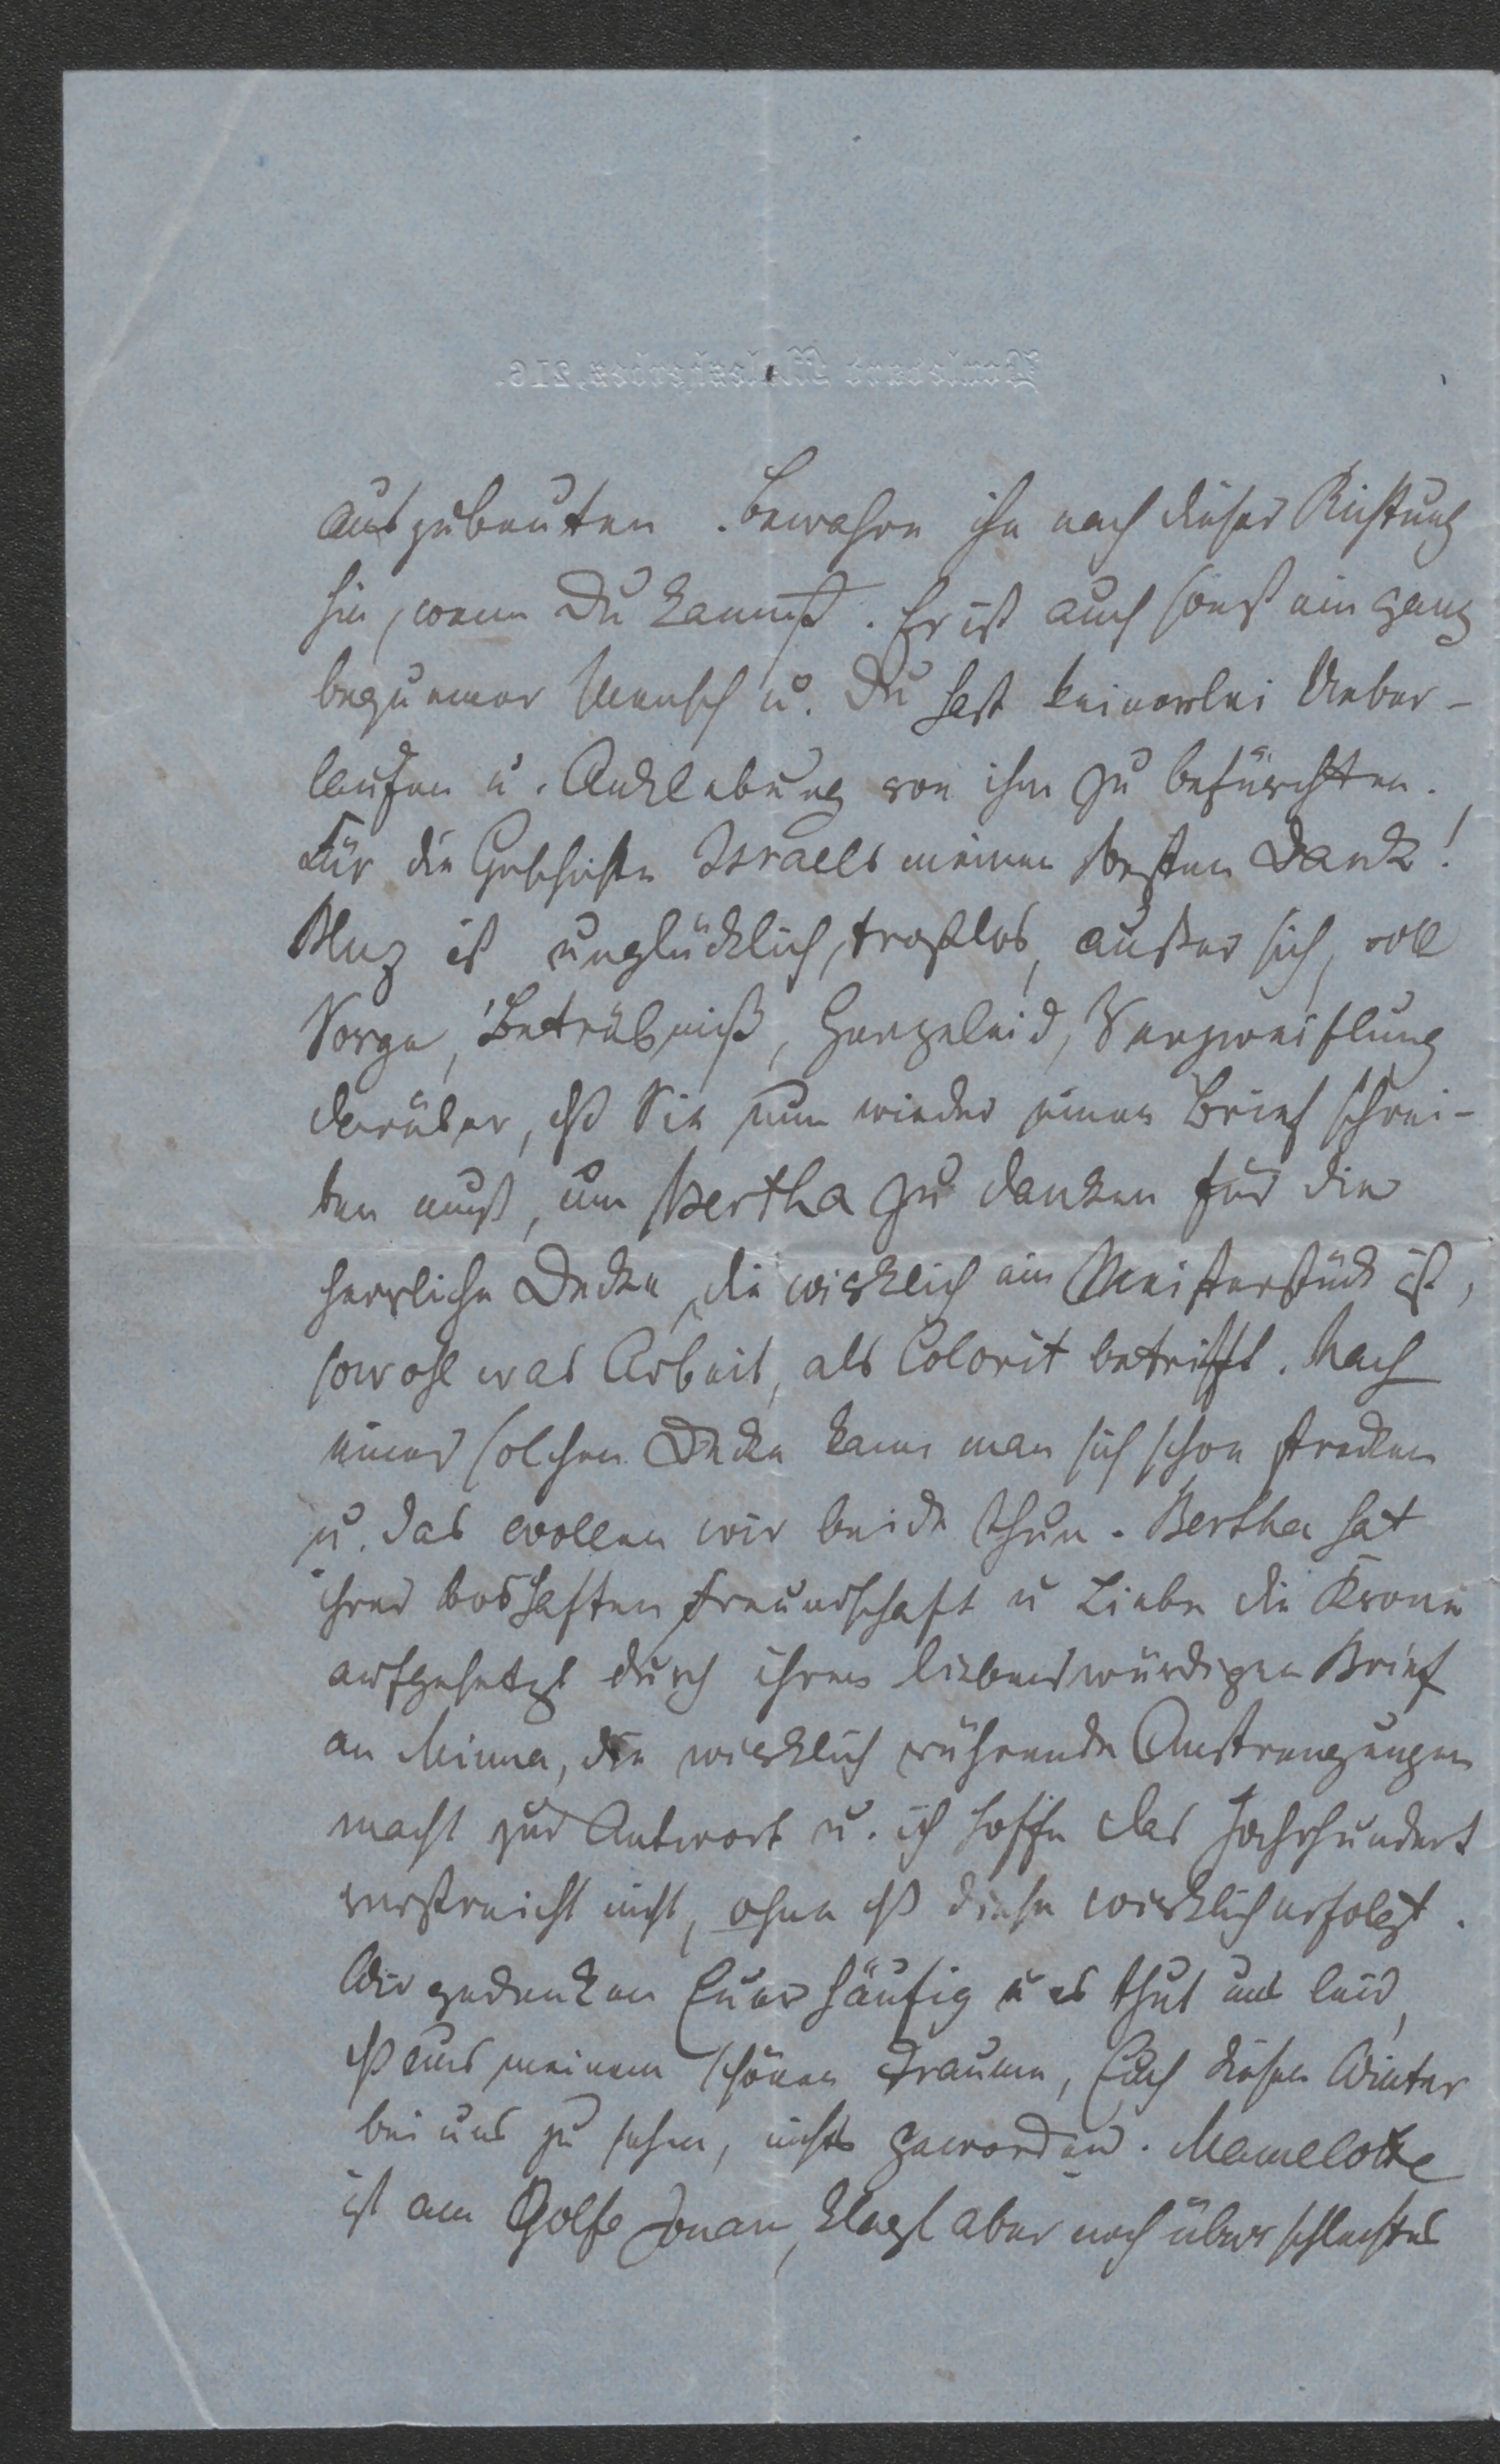 Boulevard Malesherbes, 216.
auszubeuten. Bewahre ihn nach dieser Richtung
hin, wenn Du kannst. Er ist auch sonst ein ganz
bequemer Mensch u. Du hast keinerlei Ueber-
laufen u. Anklebung von ihm zu befürchten.
Für die Geschichte Israels meinen besten Dank!
ist unglücklich, trostlos, außer sich, voll
Sorge, Betrübniß, Herzeleid, Verzweiflung
darüber, dß Sie nun wieder einen Brief schrei-
ben muß, um Bertha zu danken für die
herrliche Decke, die wirklich ein Meisterstück ist,
sowohl was Arbeit, als Colorit betrifft. Nach
einer solchen Decke kann man sich schon strecken
u. das wollen wir beide thun. Bertha hat
ihrer boshaften Freundschaft u Liebe die Krone
aufgesetzt durch ihren liebenswürdigen Brief
an Minna, die wirklich rührende Anstrengungen
macht zur Antwort u. ich hoffe das Jahrhundert
verstreicht nicht, ohne dß diese wirklich erfolgt.
Wir gedenken Euer häufig u es thut uns leid,
dß aus meinem schönen Traume, Euch diesen Winter
bei uns zu sehen, nichts geworden.
ist am Golfe Jouan, klagt aber noch über schlechtes